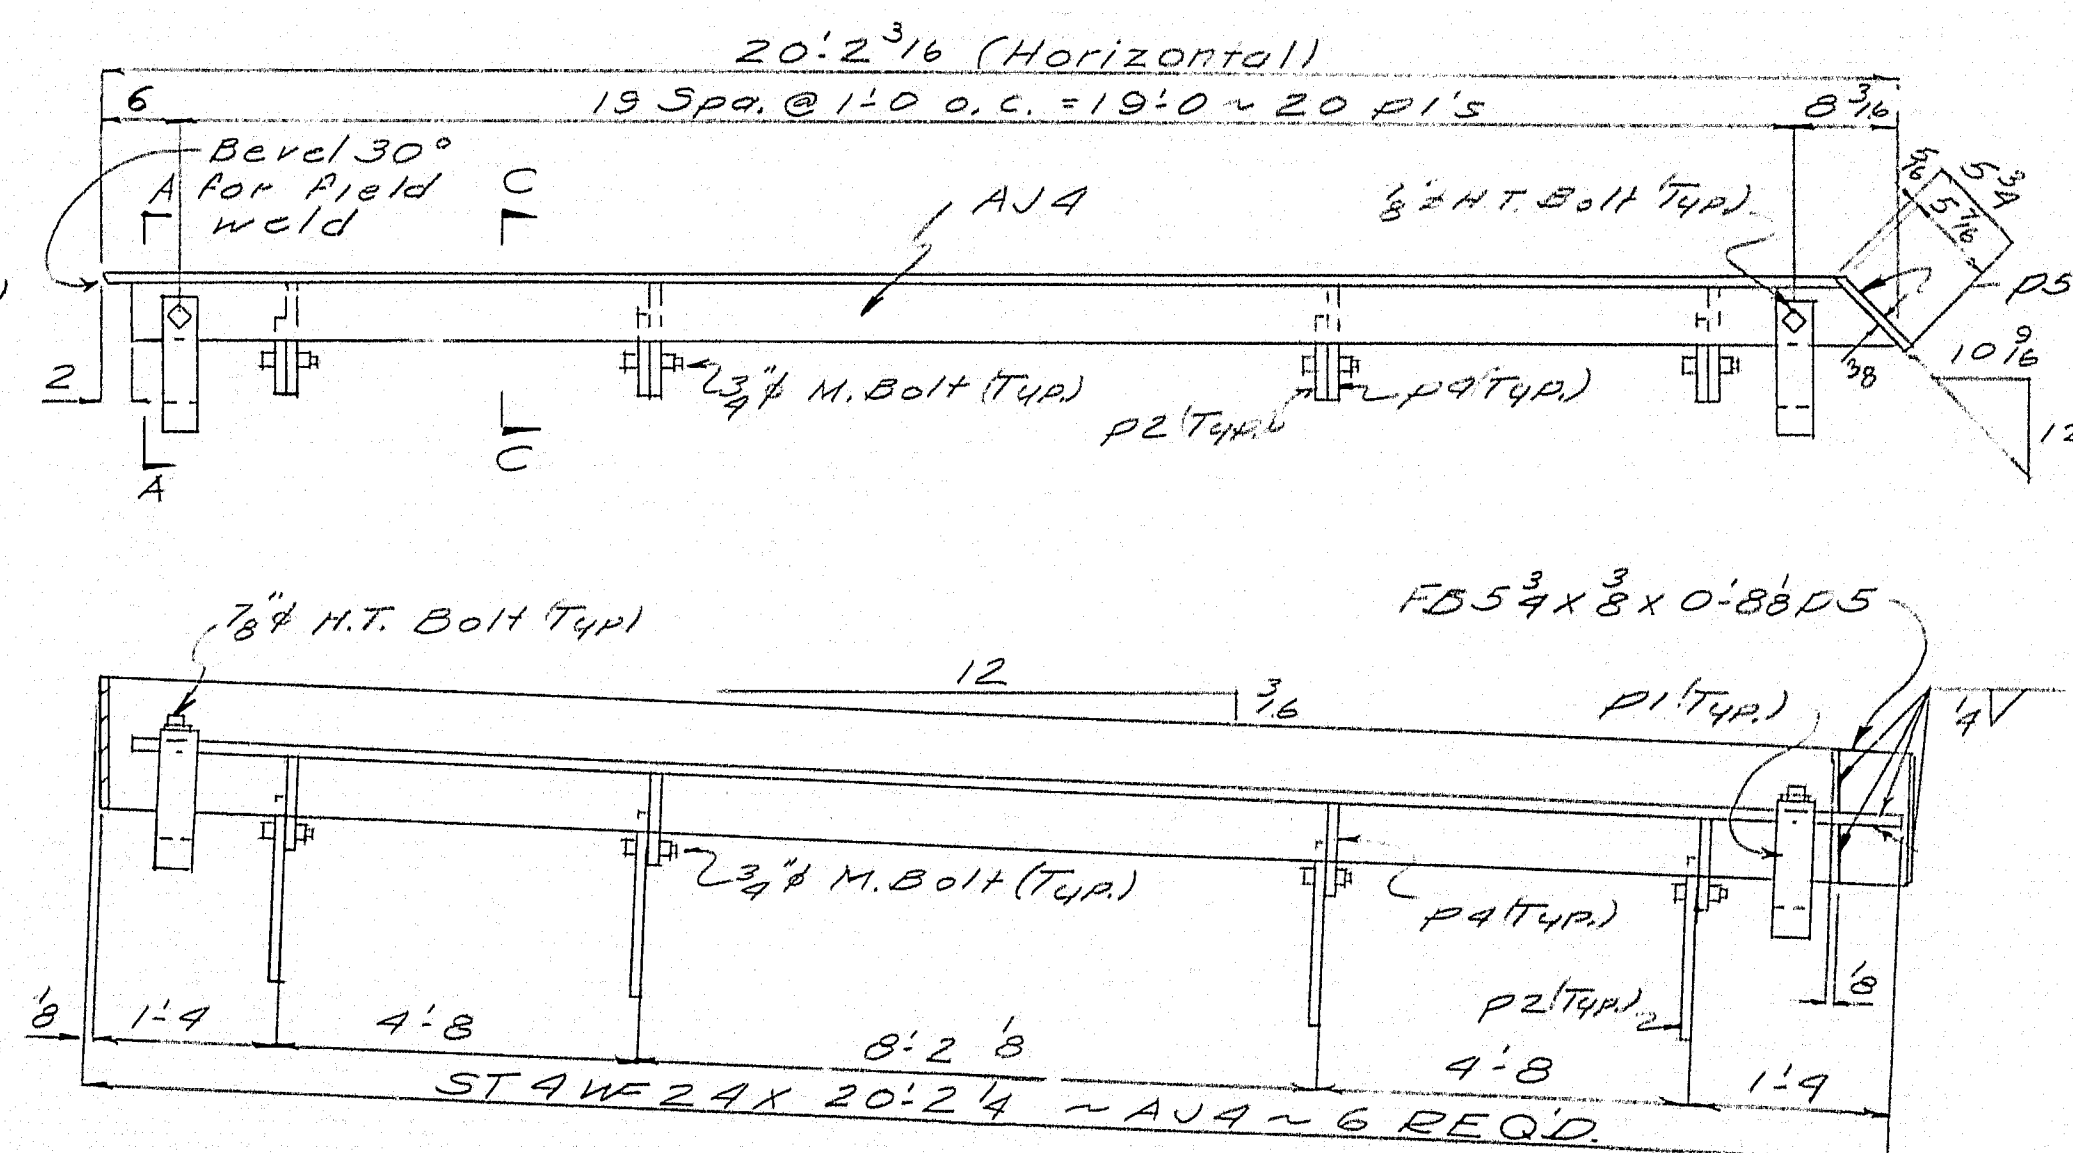 20'-2 3/16 (Horizontal)
6
19 Spa. @ 1'-0 o.c. = 19'-0 ~ 20 p1's
8 3/16
Bevel 30°
for field
weld
A
C
AJ4
1/8"ø H.T. Bolt (Typ)
5/16
5 3/4
5 7/16
p5
10 9/16
12
3/8
2
3/4"ø M. Bolt (Typ.)
p2 (Typ.)
p4 (Typ.)
A
C
7/8"ø H.T. Bolt (Typ)
FB 5 3/4 x 3/8 x 0'-8 1/8 p5
12
3/16
p1 (Typ.)
1/4
3/4"ø M. Bolt (Typ.)
p4 (Typ.)
p2 (Typ.)
1/8
1/8
1'-4
4'-8
8'-2 1/8
4'-8
1'-4
ST 4 WF 24 x 20'-2 1/4 ~ AJ4 ~ 6 REQ'D.